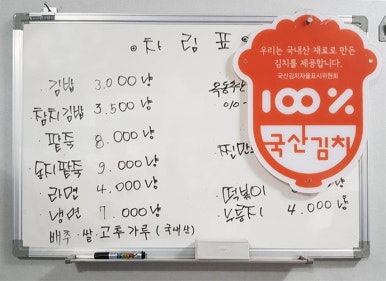 차림표
김밥 3.000냥
참치김밥 3.500냥
팥죽 8.000냥
동지팥죽 9.000냥
라면 4.000냥
냉면 7.000냥
배추·쌀·고추가루 (국내산)
떡볶이
누룽지 4.000냥
우리는 국내산 재료로 만든
김치를 제공합니다.
국산김치자율표시위원회
100%
국산김치